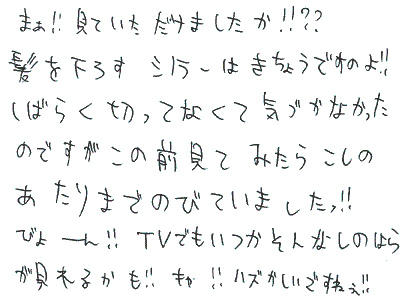 まぁ!!見ていただけましたか!!??
髪を下ろすシリーはきちょうですのよ!!
しばらく切ってなくて気づかなかった
のですがこの前見てみたらこしの
あたりまでのびていましたっ!!
びよーん!! TVでもいつかそんなしのはら
が見れるかも!! キャ!! ハズかしいですねぇ!!